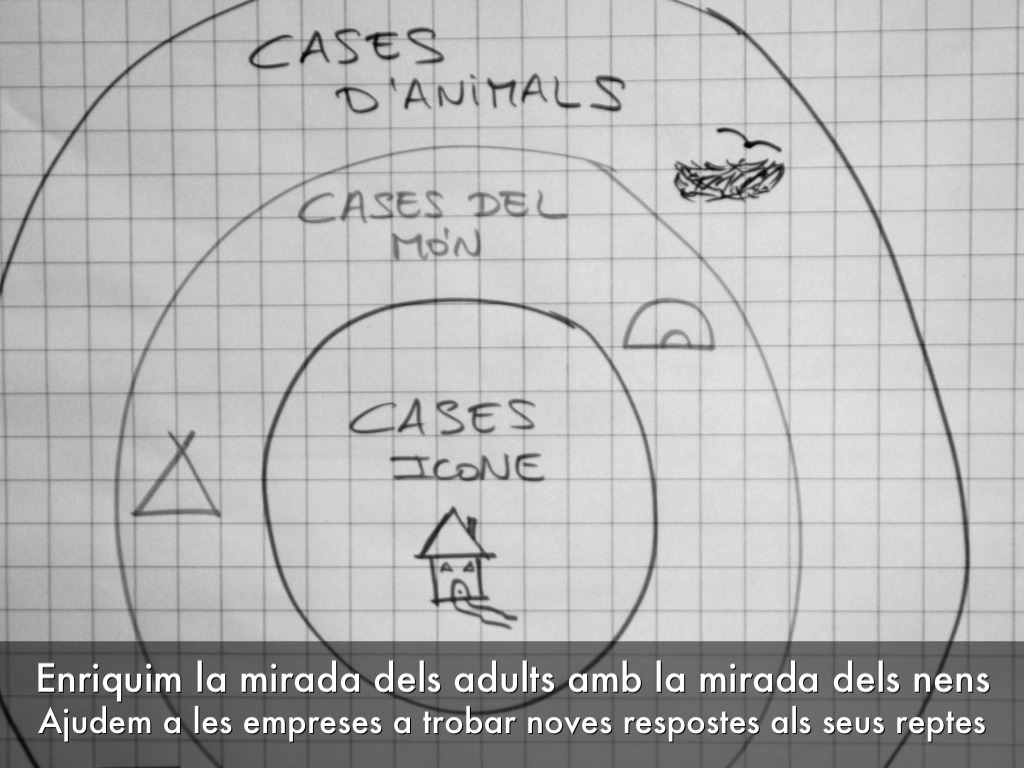 CASES
D'ANiMALS
CASES DEL
MÓN
CASES
ICONE
Enriquim la mirada dels adults amb la mirada dels nens
Ajudem a les empreses a trobar noves respostes als seus reptes